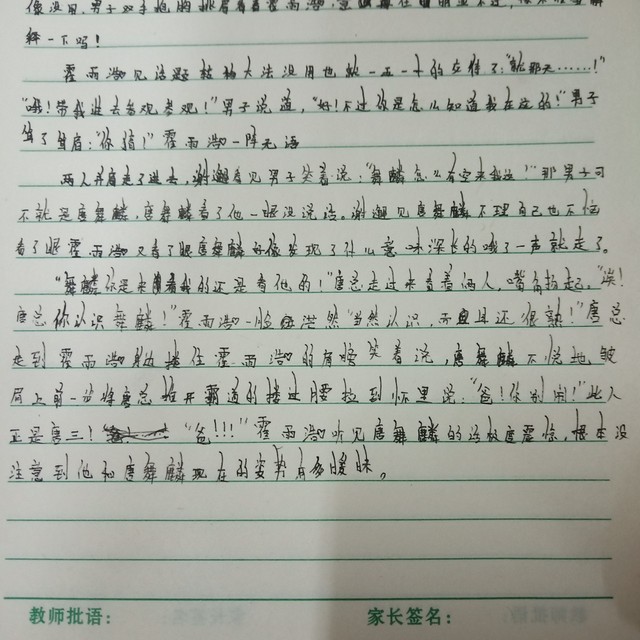 像没见,男子双手抱胸挑眉看着霍雨浩,意
释一下吗!
霍雨浩见话题转移大法没用也就一五一十的交待了:"就那天……!"
"哦!带我进去参观参观!"男子说道,"好!不过你是怎么知道我在这的!"男子
耸了耸眉:"你猜!"霍雨浩一阵无语
两人并肩走了进去,谢邂看见男子笑着说:"舞麟怎么有空来我这!"那男子可
不就是唐舞麟,唐舞麟看了他一眼没说话。谢邂见唐舞麟不理自己也不恼
看了眼霍雨浩又看了眼唐舞麟好像发现了什么意味深长的哦了一声就走了。
"舞麟你是来看我的还是看他的!"唐总走过来看着俩人,嘴角抬起。"诶!
唐总你认识舞麟!"霍雨浩一脸茫然"当然认识,而且还很熟!"唐总
走到霍雨浩身边搂住霍雨浩的肩膀笑着说,唐舞麟不悦地皱
眉上前一步将唐总推开霸道的搂过腰拉到怀里说:"爸!你别闹!"此人
正是唐三!"爸!!!"霍雨浩听见唐舞麟的话极度震惊,根本没
注意到他和唐舞麟现在的姿势有多暧昧。
教师批语: 家长签名: